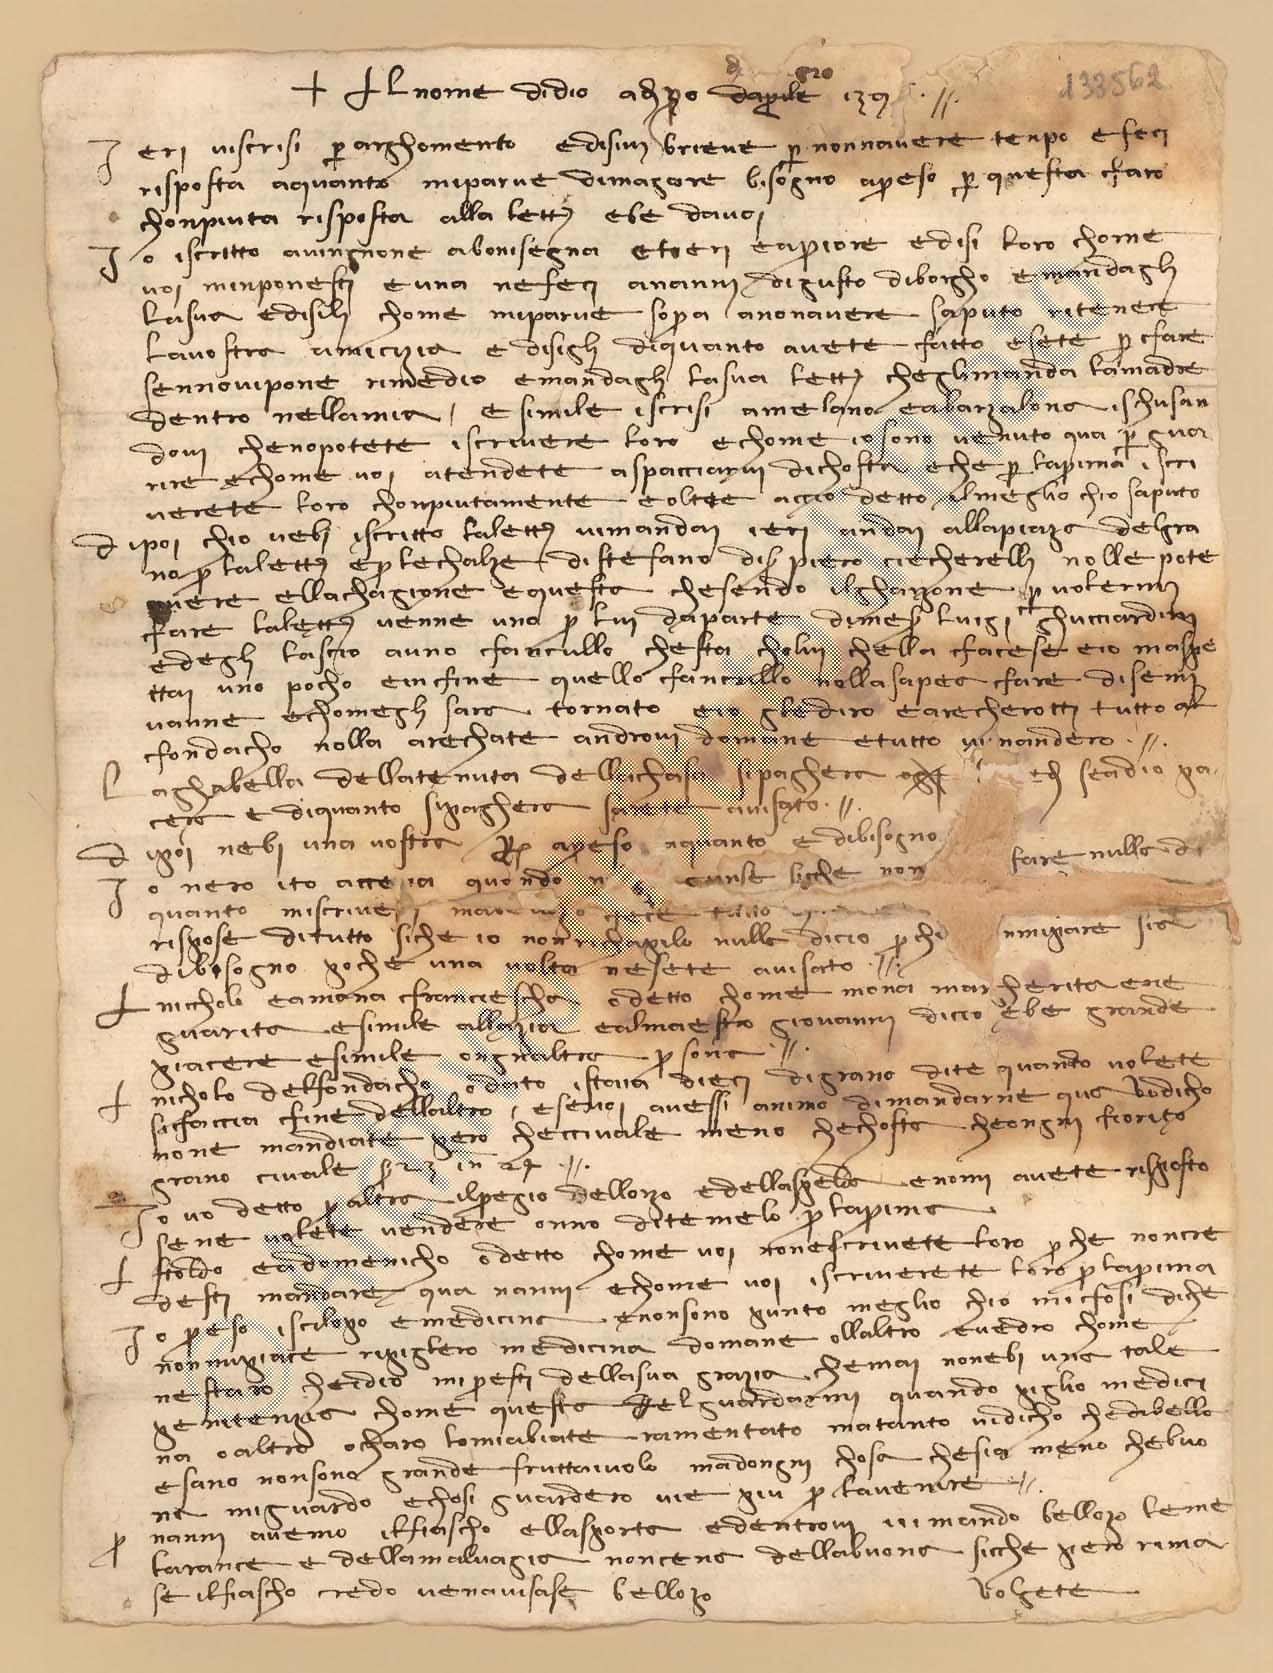 133562
+ Al nome didio adi primo daprile 139
Ieri viscrisi per arghomento e disivi brieve per nonnavere tenpo e feci
risposta aquanto miparve dimagiore bisogno apreso per questa faro
chonpiuta risposta alla lettera ebe davoi
Io iscritto avingnone abonisegna etieri eapriore edisi loro chome
voi minponesti e una nefeci ananni digusto diborgho emandagli
lasua edisili chome miparve sopra anonavere saputo ritenere
lavostra amicizia e disigli diquanto avete fatto esete per fare
sennovipone rimedio emandagli lasua lettera cheglimanda lamadre
dentro nellamia / esimile iscrisi amelano eabarzalona ischusan
dovi chenopotete iscrivere loro echome iosono venuto qua per gua
rire echome voi atendete aspacciarvi dichosta eche per laprima iscri
verete loro chonpiutamente eoltre accio detto ilmeglio chio saputo
dipoi chio nebi iscritto lalettera vimandai ieri andai allapiaza delgra
no per lalettera e per lechalze distefano diser piero ciecherelli nolle pote
avere ellachagione equesta chesendo ilgharzone per volermi
fare lalettera venne uno per lui daparte dimeser luigi ghucciardini
edegli lascio auno fanciullo chesta cholui chella facese eio maspe
ttai uno pocho einfine quello fanciullo nollasapea fare disemi
vanne echomegli sara tornato eio glediro earecherotti tutto al
fondacho nolla arechate androvi domane etutto vimandero .//.
Laghabella dellatenuta dellachasa sipaghera edi seadio pia
cera e diquanto sipaghera sarete avisato .//.
dipoi nebi una vostra apreso aquanto e dibisogno
Io nero ito quando giunse sicche non fare nulla di
quanto miscrivete tutto
rispose ditutto siche io nonrichapilo nulla dicio perche nmipare sia
dibisogno poche una volta nesete avisato .//.
+ nicholo eamona franciescha o detto chome mona margherita ene
guarita esimile allazia ealmaestro giovanni dicio ebe grande
piacere esimile ongnaltra persona .//.
+ nicholo delfondacho o dato istaia dieci digrano dite quanto volete
sifaccia fine dellaltro / esevoi avessi animo dimandarne qua vodicho
none mandiate pero checcivale meno chechosta cheongni fiorito
grano civale s 23 in 24 .//.
Io vo detto per altra ilpregio dellorzo edellaspelda enomi avete risposto
sene volete vendere onno ditemelo per laprima
+ stoldo eadomenicho o detto chome voi nonescrivete loro perche noncre
desti mandare qua nanni echome voi iscriverete loro per laprima
Io preso iscilopo emedicina enonsono punto meglio chio mifosi diche
nonmipiace ripiglero medicina domane ollaltro evedro chome
nestaro cheidio mipresti dellasua grazia chemai nonebi una tale
penitenzia chome questa del guardarmi quando piglio medici
na oaltro ocharo lomiabiate ramentato matanto vidicho chedibello
esano nonsono grande fruttaiuolo madongni chosa chesia meno chebuo
na miguardo echosi guardero vie piu per lavenire .//.
per nanni avemo ilfiascho ellasporta edentrovi vimando bellozo leme
larance e dellamalvagia noncena dellabuona sicche pero rima
se ilfiascho credo venavisase bellozo
volgete